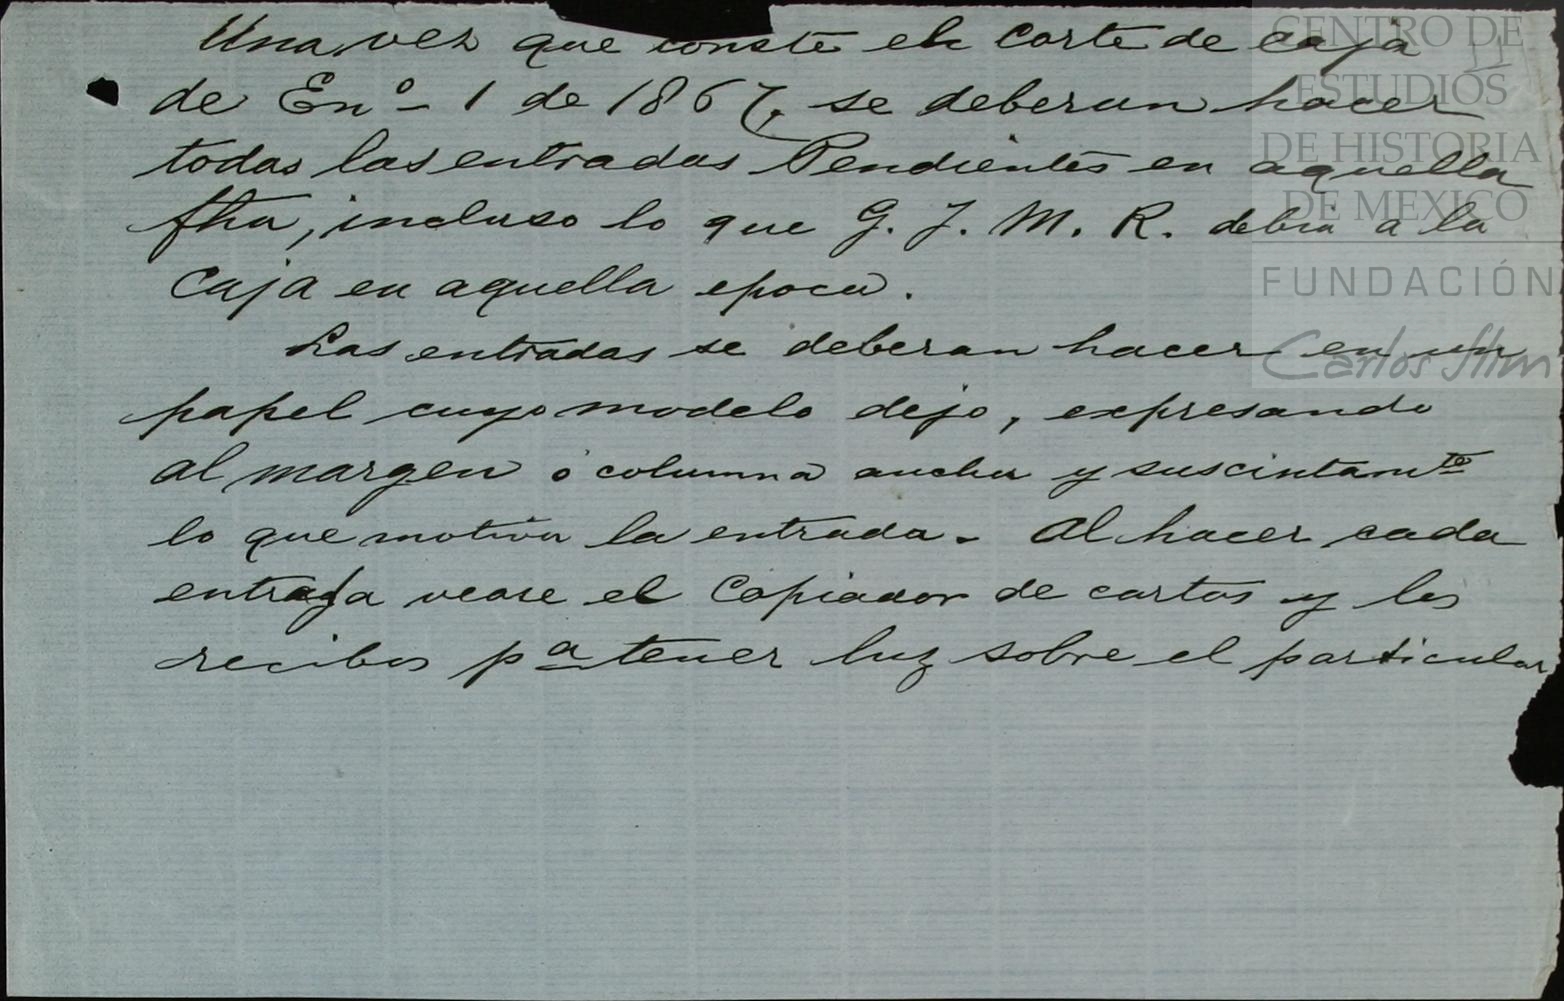 Una vez que conste el Corte de caja
de Enº 1 de 1867, se deberan hacer
todas las entradas Pendientes en aquella
fha, incluso lo que G. J. M. R. debia a la
Caja en aquella epoca.
Las entradas se deberan hacer en un
papel cuyo modelo dejo, expresando
al margen ó columna ancha y suscintamte
lo que motiva la entrada. Al hacer cada
entrada vease el Copiador de cartas y los
recibos pa tener luz sobre el particular
CENTRO DE
ESTUDIOS
DE HISTORIA
DE MEXICO
FUNDACIÓN
Carlos Slim